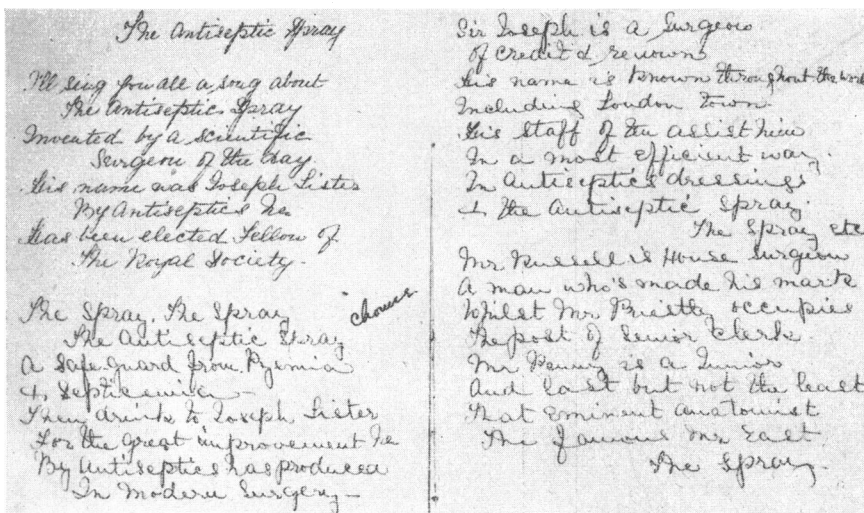 The Antiseptic Spray
I'll sing you all a song about
The Antiseptic Spray
Invented by a scientific
Surgeon of the day.
His name was Joseph Lister
By Antiseptics he
Has been elected Fellow of
The Royal Society.
The Spray, The Spray chorus
The Antiseptic Spray
A Safe guard from Pyemia
& Septicemia
Then drink to Joseph Lister
For the great improvement he
By Antiseptics has produced
In Modern Surgery
Sir Joseph is a Surgeon
of credit & renown
His name is known throughout the world
Including London Town
His staff of ten assist him
In a most efficient way,
In Antiseptics dressings
& the Antiseptic Spray.
The Spray etc
Mr Russell is House Surgeon
A man who's made his mark
Whilst Mr Priestly occupies
The post of Senior Clerk.
Mr Penny is a Junior
And last but not the least
That eminent anatomist
The famous Mr East.
The Spray.